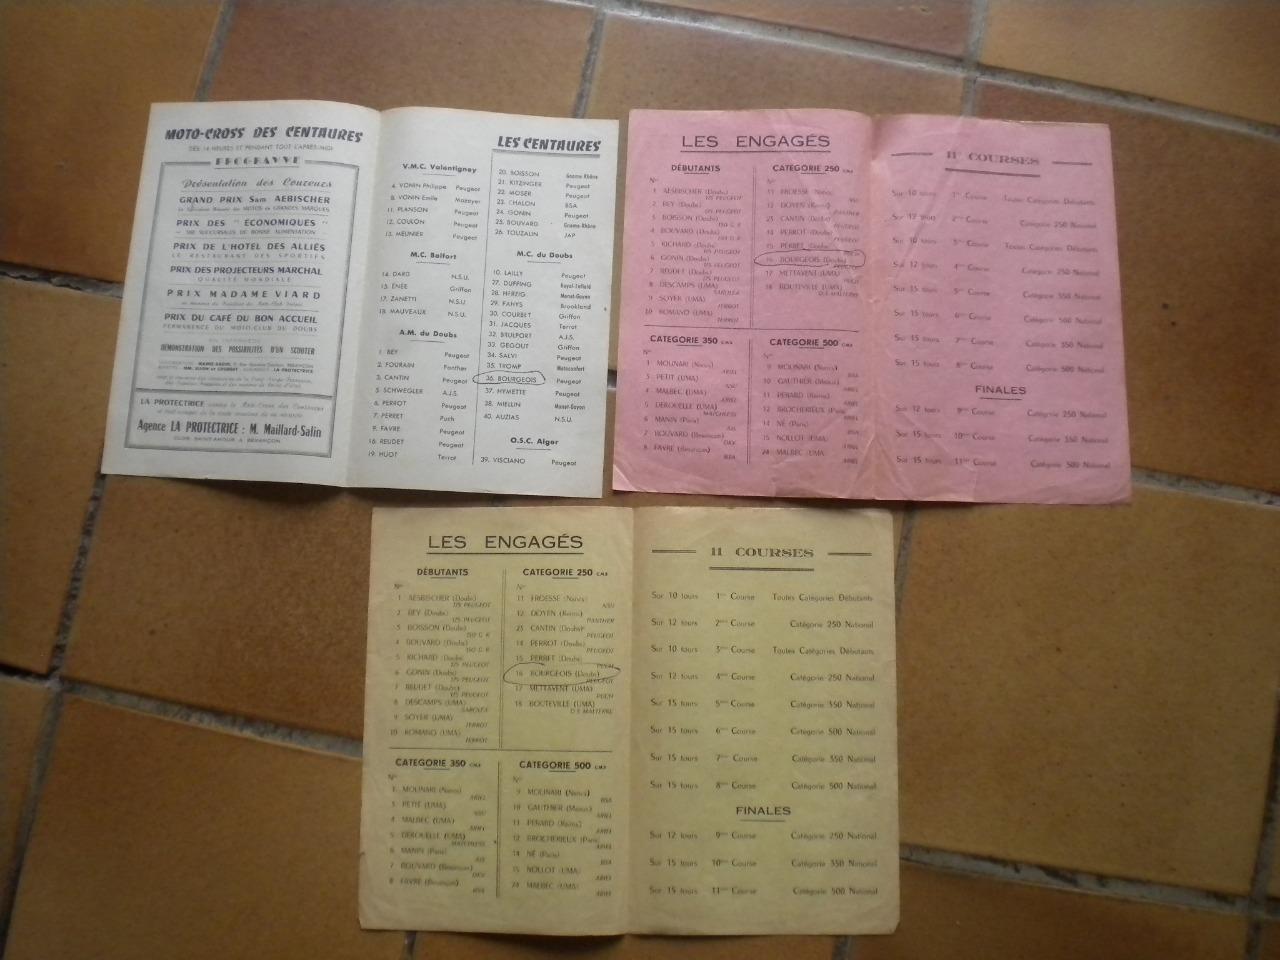 MOTO-CROSS DES CENTAURES
DÈS 14 HEURES ET PENDANT TOUT L'APRÈS-MIDI
PROGRAMME
Présentation des Coureurs
GRAND PRIX Sam AEBISCHER
PRIX DES "ÉCONOMIQUES"
PRIX DE L'HOTEL DES ALLIÉS
LE RESTAURANT DES SPORTIFS
PRIX DES PROJECTEURS MARCHAL
QUALITÉ MONDIALE
PRIX MADAME VIARD
PRIX DU CAFÉ DU BON ACCUEIL
PERMANENCE DU MOTO-CLUB DU DOUBS
DÉMONSTRATION DES POSSIBILITÉS D'UN SCOOTER
LA PROTECTRICE
Agence LA PROTECTRICE : M. Maillard-Salin
LES CENTAURES
V.M.C. Valentigney
4. VONIN Philippe Peugeot
8. VONIN Emile
11. PLANSON Peugeot
12. COULON Peugeot
13. MEUNIER Peugeot
M.C. Belfort
14. DARD N.S.U.
15. ÉNÉE Griffon
17. ZANETTI N.S.U.
18. MAUVEAUX N.S.U.
A.M. du Doubs
1. BEY Peugeot
2. FOURAIN Panther
3. CANTIN Peugeot
5. SCHWEGLER A.J.S.
6. PERROT Peugeot
7. PERRET Puch
9. FAVRE Peugeot
16. REUDET Peugeot
19. HUOT Terrot
20. BOISSON Gnome-Rhône
21. KITZINGER Peugeot
22. MOSER Peugeot
23. CHALON BSA
24. GONIN Peugeot
25. BOUVARD Gnome-Rhône
26. TOUZALIN JAP
M.C. du Doubs
10. LAILLY Peugeot
27. DUFFING Royal-Enfield
28. HERZIG Monet-Goyon
29. FAHYS Brookland
30. COURBET Griffon
31. JACQUES Terrot
32. BRULPORT A.J.S.
33. GEGOUT Griffon
34. SALVI Peugeot
35. TROMP Motoconfort
36. BOURGEOIS Peugeot
37. HYMETTE Peugeot
38. MIELLIN Monet-Goyon
40. AUZIAS N.S.U.
O.S.C. Alger
39. VISCIANO Peugeot
LES ENGAGÉS
DÉBUTANTS
1 AESBISCHER (Doubs)
125 PEUGEOT
2 BEY (Doubs)
125 PEUGEOT
3 BOISSON (Doubs)
150 G. R.
4 BOUVARD (Doubs)
150 G. R.
5 RICHARD (Doubs)
125 PEUGEOT
6 GONIN (Doubs)
125 PEUGEOT
7 REUDET (Doubs)
125 PEUGEOT
8 DESCAMPS (UMA)
SAROLEA
9 SOYER (UMA)
TERROT
10 ROMANO (UMA)
TERROT
CATEGORIE 250 CM3
11 FROESSE (Nancy)
NSU
12 DOYEN (Reims)
PANTHER
23 CANTIN (Doubs)
PEUGEOT
14 PERROT (Doubs)
PEUGEOT
15 PERRET (Doubs)
PUCH
16 BOURGEOIS (Doubs)
PEUGEOT
17 METTAVENT (UMA)
PUCH
18 BOUTEVILLE (UMA)
D.S. MALTERRE
CATEGORIE 350 CM3
1 MOLINARI (Nancy)
ARIEL
3 PETIT (UMA)
NSU
4 MALBEC (UMA)
ARIEL
5 DEROUELLE (UMA)
MATCHLESS
6 MANIN (Paris)
AJS
7 BOUVARD (Besançon)
DKW
8 FAVRE (Besançon)
BSA
CATEGORIE 500 CM3
9 MOLINARI (Nancy)
BSA
10 GAUTHIER (Meaux)
ARIEL
11 PERARD (Reims)
ARIEL
12 BROCHERIEUX (Paris)
ARIEL
14 NÉ (Paris)
BSA
15 NOLLOT (UMA)
ARIEL
24 MALBEC (UMA)
ARIEL
11 COURSES
Sur 10 tours 1re Course Toutes Catégories Débutants
Sur 12 tours 2me Course Catégorie 250 National
Sur 10 tours 3me Course Toutes Catégories Débutants
Sur 12 tours 4me Course Catégorie 250 National
Sur 15 tours 5me Course Catégorie 350 National
Sur 15 tours 6me Course Catégorie 500 National
Sur 15 tours 7me Course Catégorie 350 National
Sur 15 tours 8me Course Catégorie 500 National
FINALES
Sur 12 tours 9me Course Catégorie 250 National
Sur 15 tours 10me Course Catégorie 350 National
Sur 15 tours 11me Course Catégorie 500 National
LES ENGAGÉS
DÉBUTANTS
Nos
1 AESBISCHER (Doubs)
125 PEUGEOT
2 BEY (Doubs)
125 PEUGEOT
3 BOISSON (Doubs)
150 G. R.
4 BOUVARD (Doubs)
150 G. R.
5 RICHARD (Doubs)
125 PEUGEOT
6 GONIN (Doubs)
125 PEUGEOT
7 REUDET (Doubs)
125 PEUGEOT
8 DESCAMPS (UMA)
SAROLEA
9 SOYER (UMA)
TERROT
10 ROMANO (UMA)
TERROT
CATEGORIE 250 CM3
Nos
11 FROESSE (Nancy)
NSU
12 DOYEN (Reims)
PANTHER
23 CANTIN (Doubs)
PEUGEOT
14 PERROT (Doubs)
PEUGEOT
15 PERRET (Doubs)
PUCH
16 BOURGEOIS (Doubs)
PEUGEOT
17 METTAVENT (UMA)
PUCH
18 BOUTEVILLE (UMA)
D.S. MALTERRE
CATEGORIE 350 CM3
Nos
1 MOLINARI (Nancy)
ARIEL
3 PETIT (UMA)
NSU
4 MALBEC (UMA)
ARIEL
5 DEROUELLE (UMA)
MATCHLESS
6 MANIN (Paris)
AJS
7 BOUVARD (Besançon)
DKW
8 FAVRE (Besançon)
BSA
CATEGORIE 500 CM3
Nos
9 MOLINARI (Nancy)
BSA
10 GAUTHIER (Meaux)
ARIEL
11 PERARD (Reims)
ARIEL
12 BROCHERIEUX (Paris)
ARIEL
14 NÉ (Paris)
BSA
15 NOLLOT (UMA)
ARIEL
24 MALBEC (UMA)
ARIEL
11 COURSES
Sur 10 tours 1re Course Toutes Catégories Débutants
Sur 12 tours 2me Course Catégorie 250 National
Sur 10 tours 3me Course Toutes Catégories Débutants
Sur 12 tours 4me Course Catégorie 250 National
Sur 15 tours 5me Course Catégorie 350 National
Sur 15 tours 6me Course Catégorie 500 National
Sur 15 tours 7me Course Catégorie 350 National
Sur 15 tours 8me Course Catégorie 500 National
FINALES
Sur 12 tours 9me Course Catégorie 250 National
Sur 15 tours 10me Course Catégorie 350 National
Sur 15 tours 11me Course Catégorie 500 National